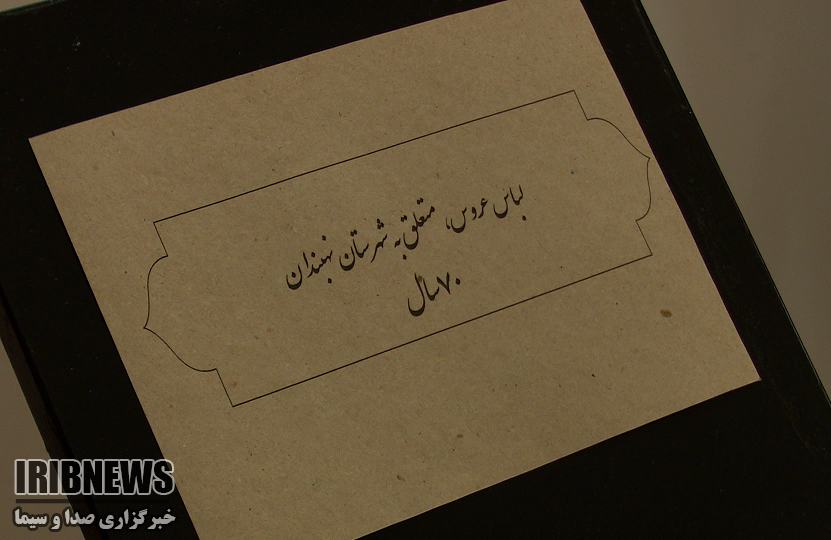 لباس عروس، متعلق به شهرستان نهبندان
۷۰ سال
IRIBNEWS
خبرگزاری صدا و سیما